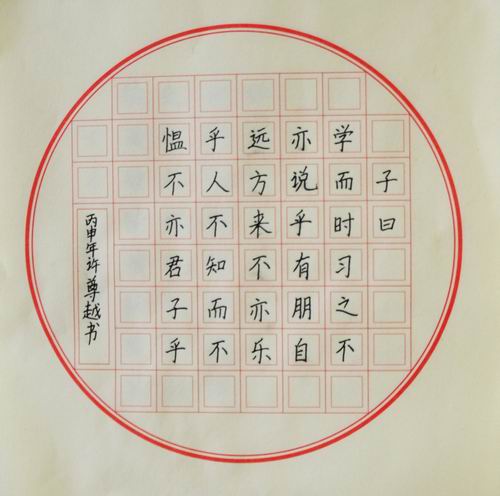 子曰
学而时习之不
亦说乎有朋自
远方来不亦乐
乎人不知而不
愠不亦君子乎
丙申年许尊越书